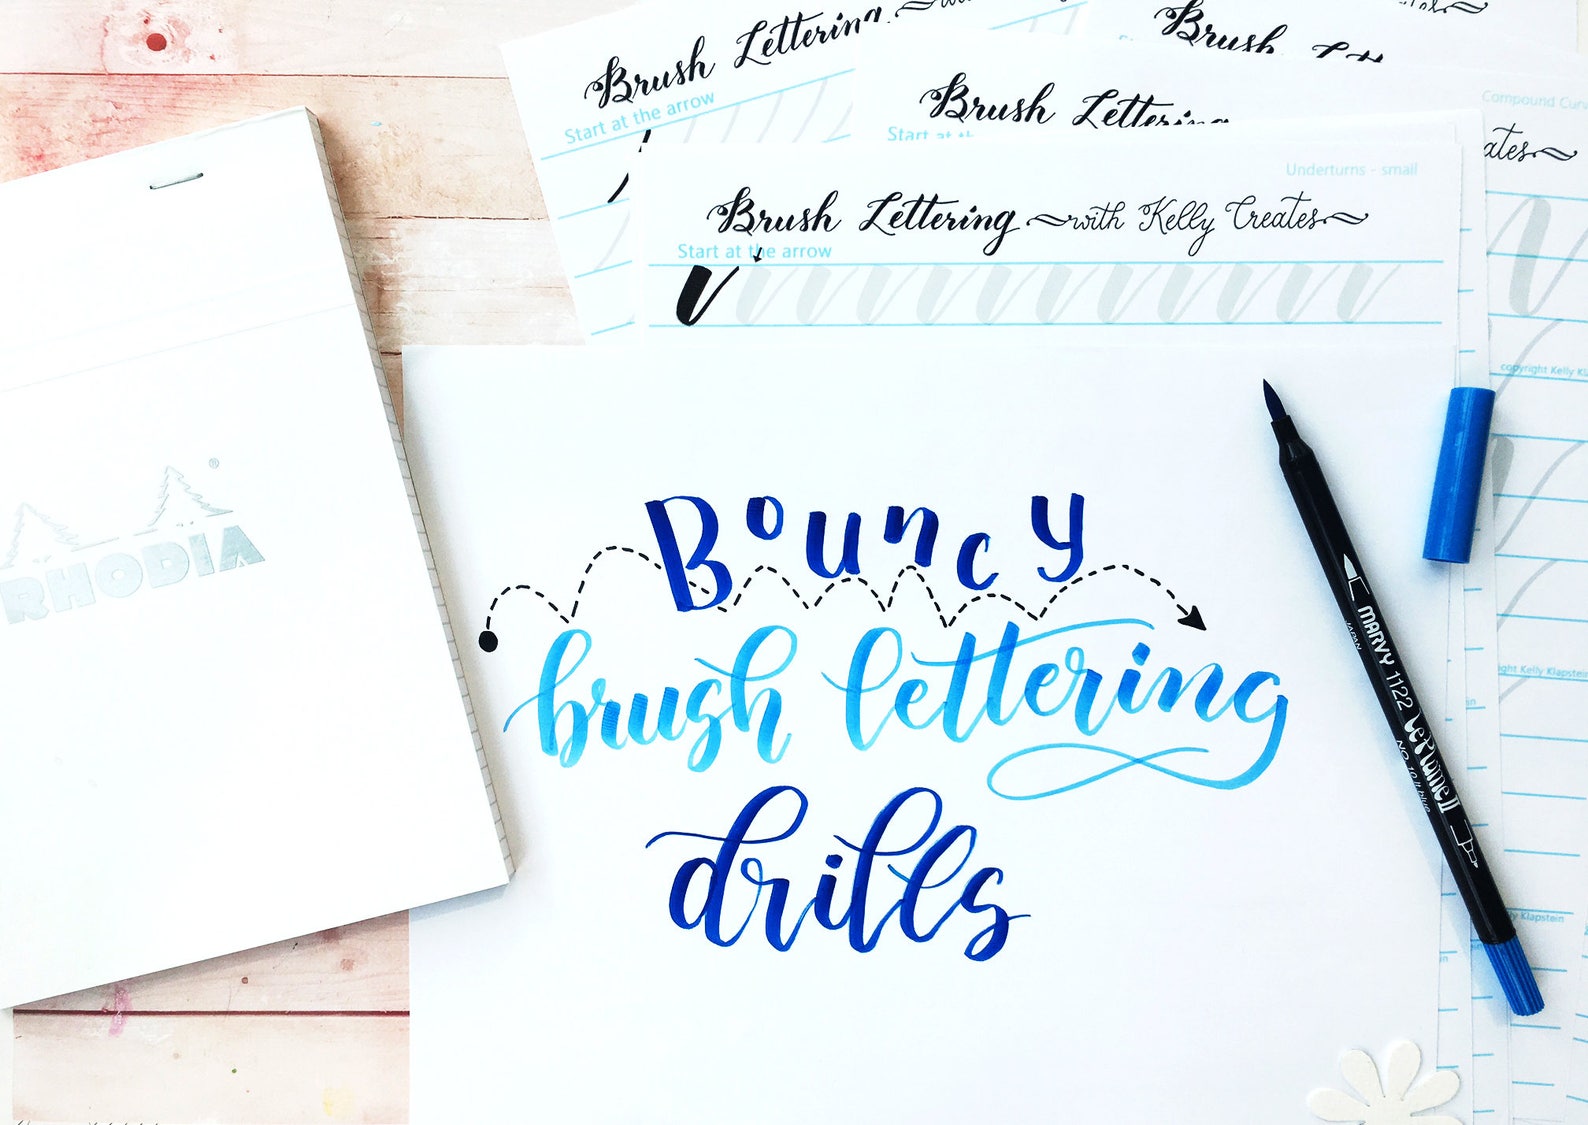 Brush Lettering
Start at the arrow
Brush
Brush Lettering
Start at
Compound
Underturns - small
Brush Lettering with Kelly Creates
Start at the arrow
copyright Kelly
RHODIA
®
Bouncy
brush lettering
drills
MARVY 1122 LePlume II
JAPAN
Kelly Klapstein
Klapstein